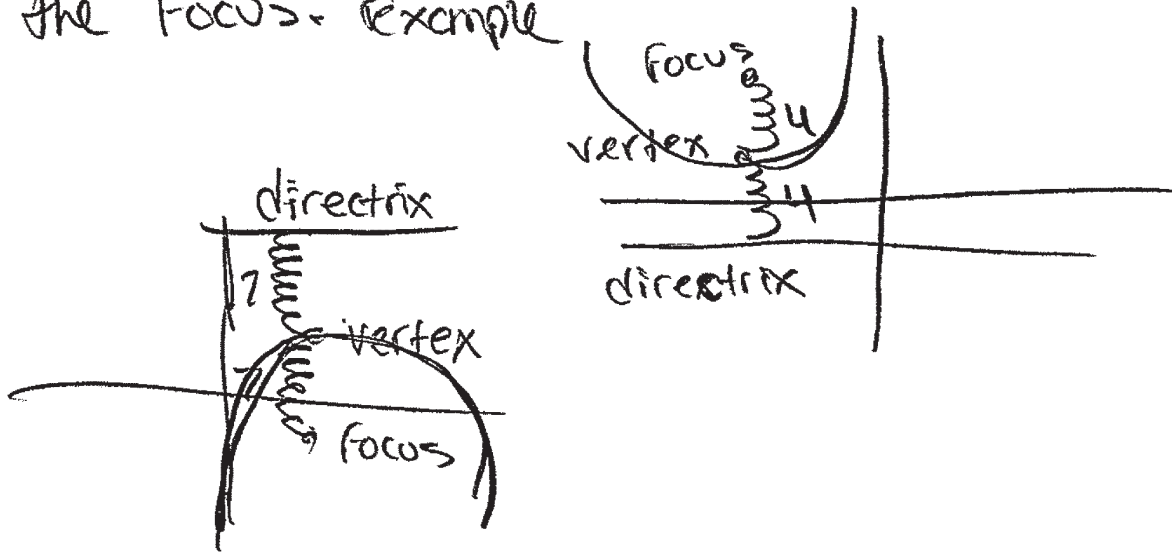 the Focus. Example
Focus
4
vertex
4
directrix
directrix
7
vertex
7
Focus